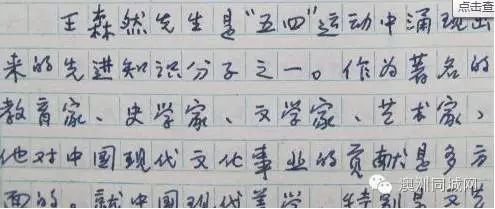 点击查
王森然先生是“五四”运动中涌现出
来的先进知识分子之一。作为著名的
教育家、史学家、文学家、艺术家，
他对中国现代文化事业的贡献是多方
面的。就中国现代美学、特别是文艺
澳洲同城网